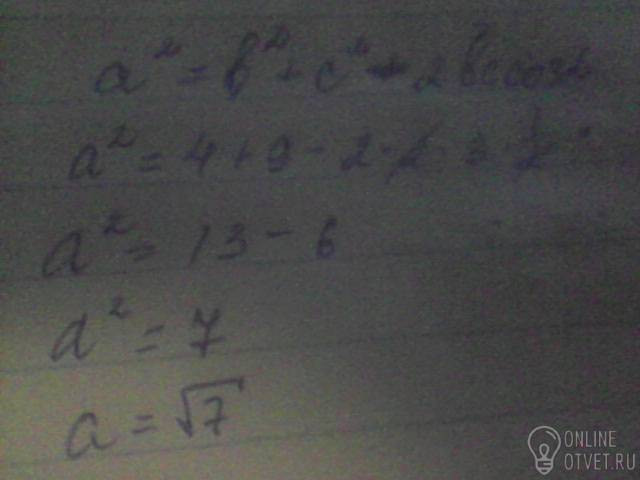 a² = b² + c² - 2bc cosα
a² = 4 + 9 - 2 · 2 · 3 · 1/2
a² = 13 - 6
a² = 7
a = √7
ONLINE
OTVET.RU